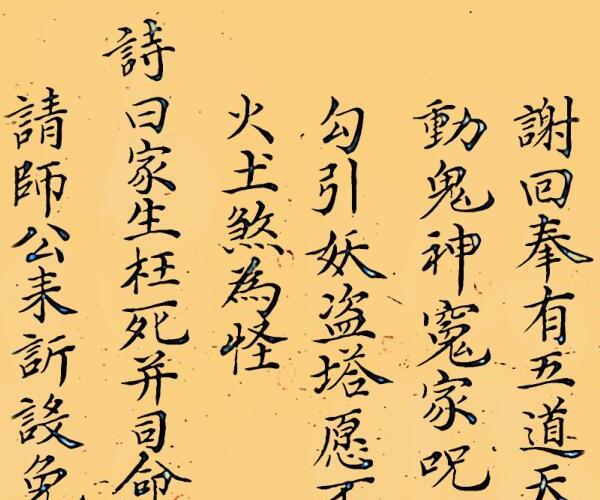 謝回奉有五道天
動鬼神寃家呪
勾引妖盗塔愿不
火土煞為怪
詩曰家生枉死并司命
請師公来訴設免